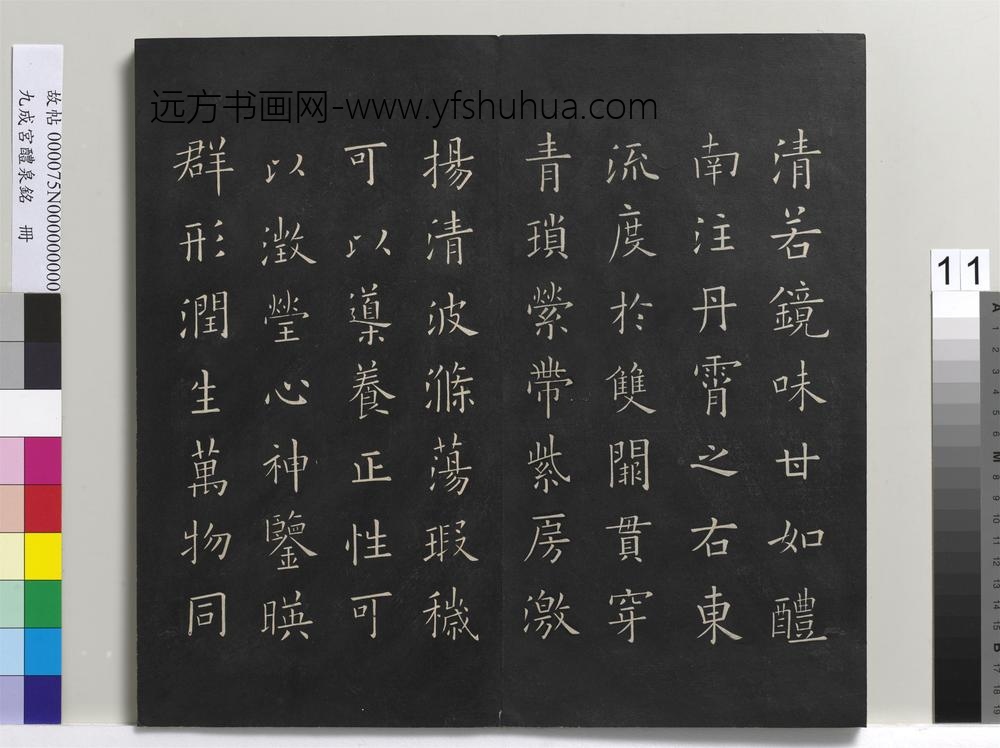 远方书画网-www.yfshuhua.com
清若鏡味甘如醴
南注丹霄之右東
流度於雙闕貫穿
青瑣縈帶紫房激
揚清波滌蕩瑕穢
可以導養正性可
以澂瑩心神鑒暎
群形潤生萬物同
故帖 000075N000000000
九成宮醴泉銘 冊
11